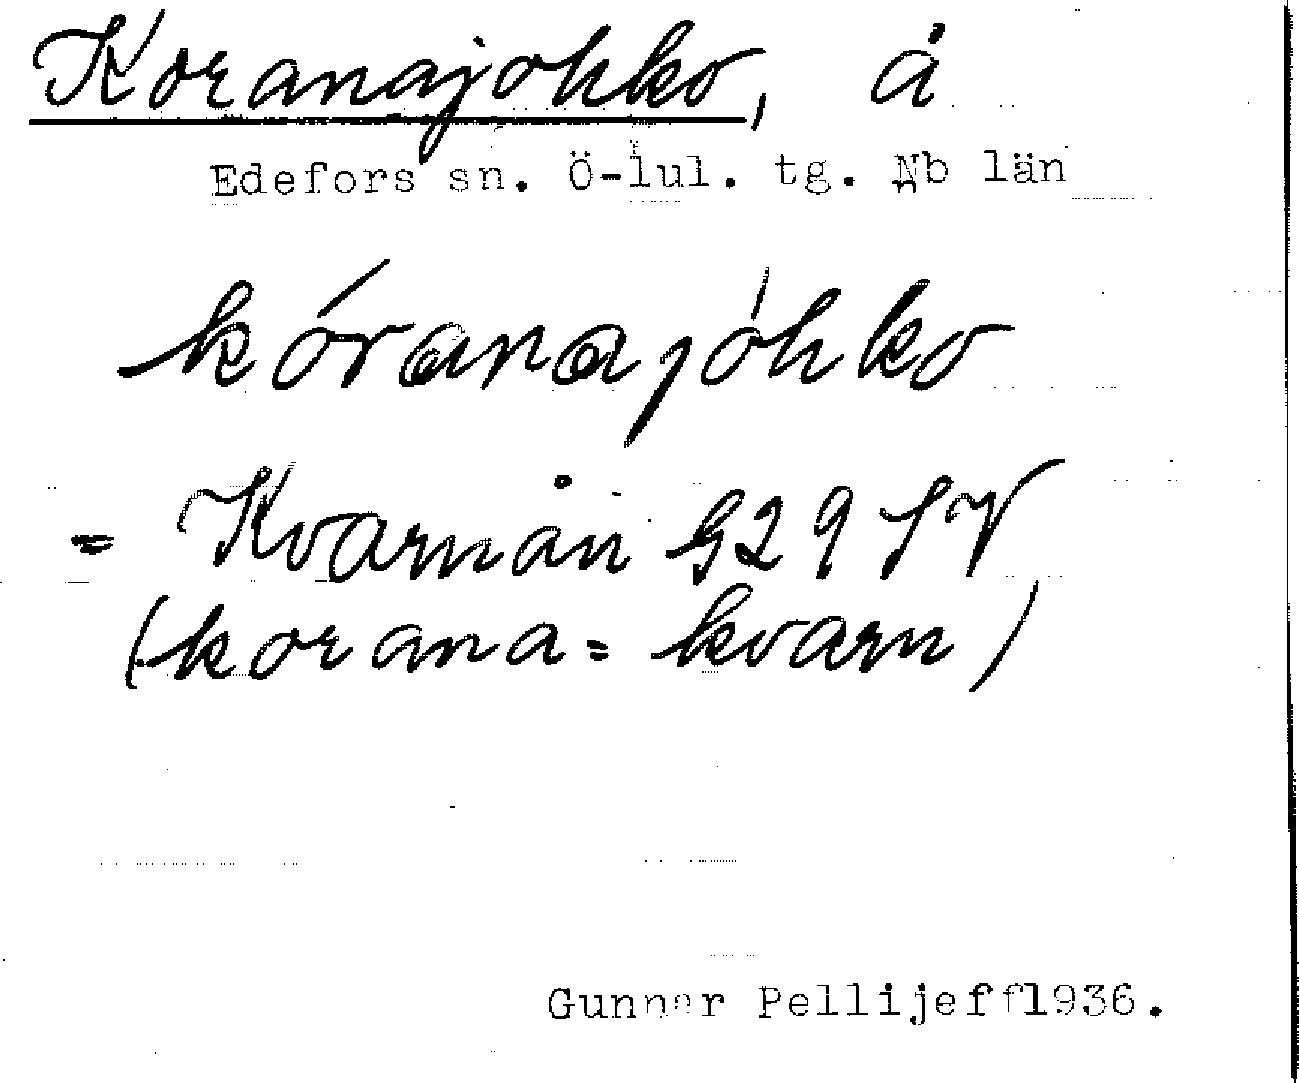 Koranajohko, å
Edefors sn. Ö-lul. tg. Nb län
kóranajóhko
= Kvarnån G29 SV
(korana = kvarn)
Gunnar Pellijeff1936.